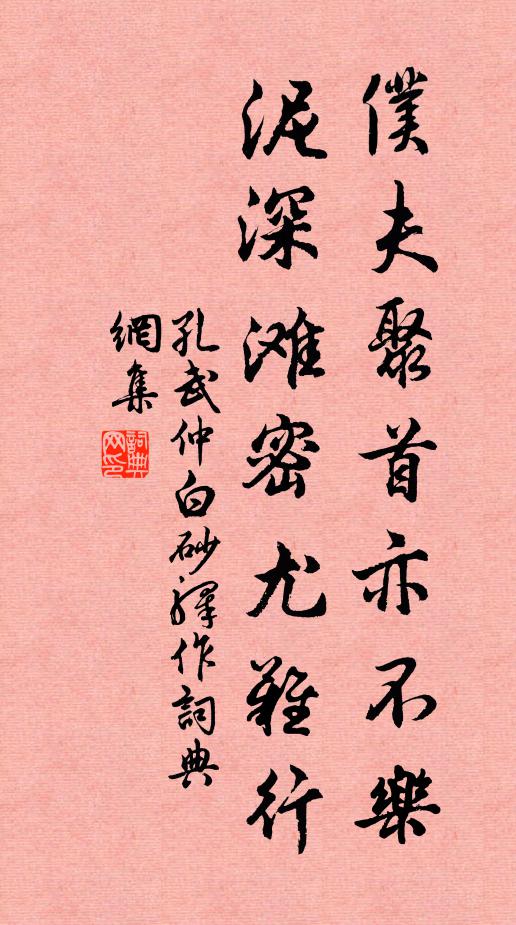 僕夫聚首亦不樂
泥深滩密尤難行
孔武仲白砂驛作詞典
網集
詞典
网印